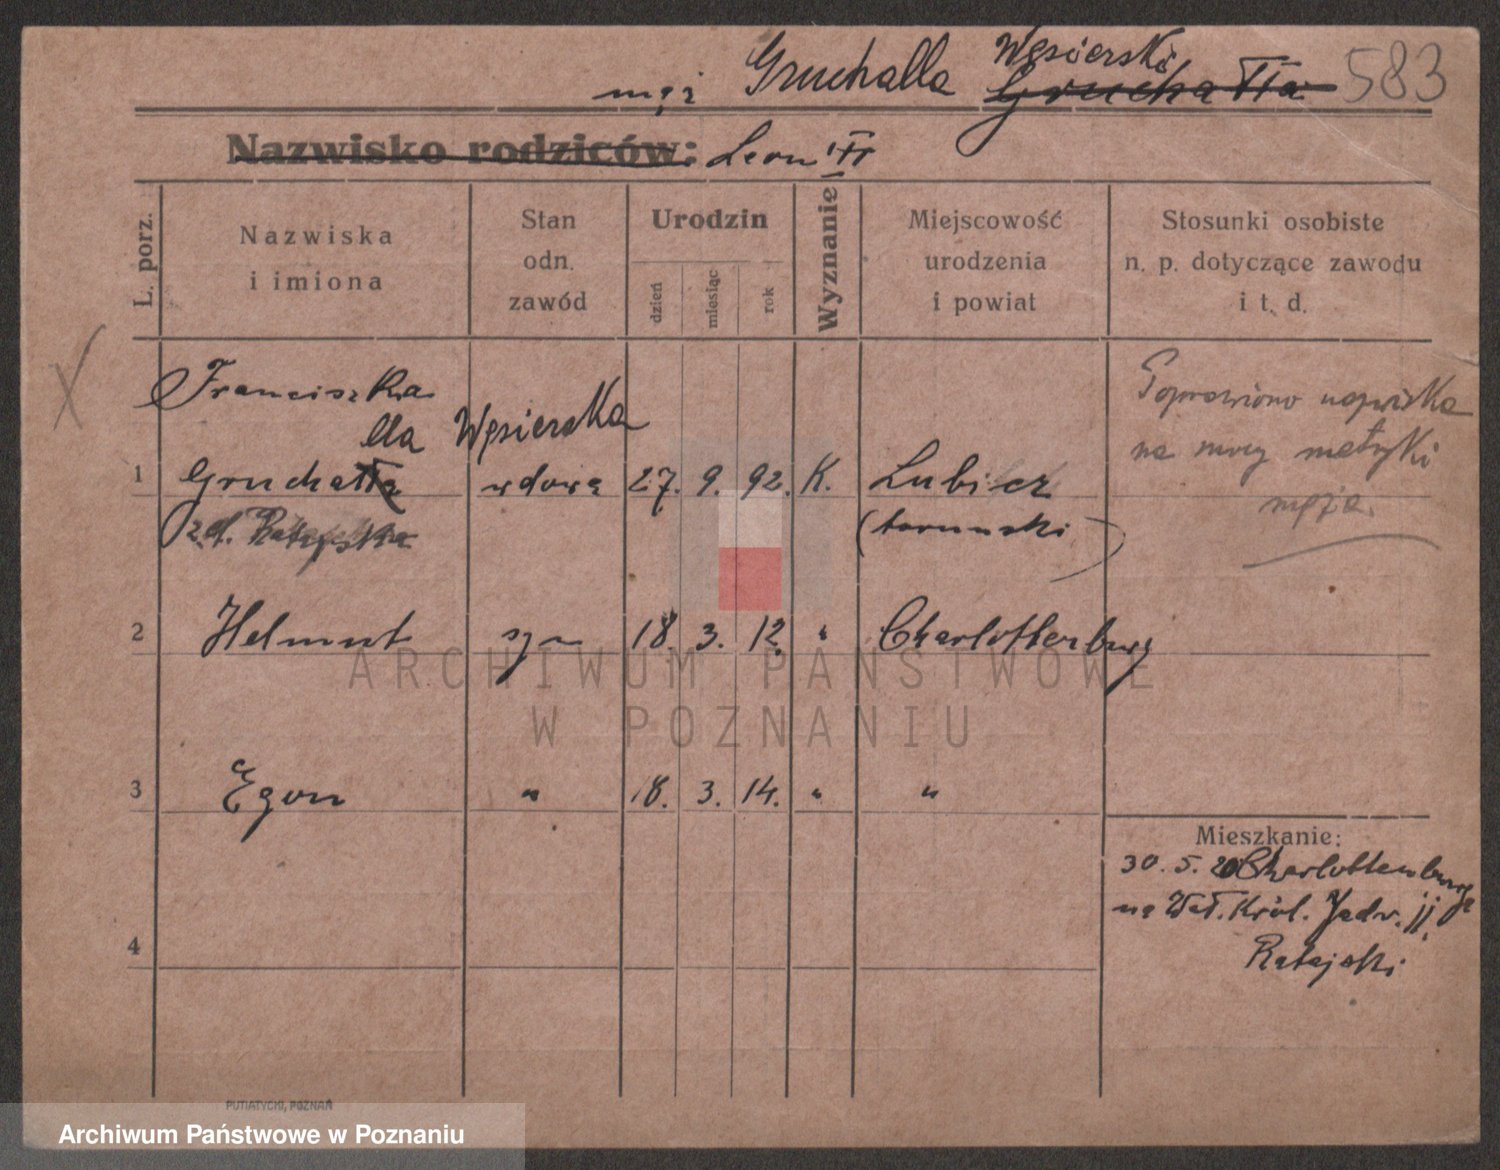 Węsierski
mąż Gruchalla Gruchałła 583
Nazwisko rodziców: Leon
L. porz.
Nazwiska
i imiona
Stan
odn.
zawód
Urodzin
dzień
miesiąc
rok
Wyznanie
Miejscowość
urodzenia
i powiat
Stosunki osobiste
n. p. dotyczące zawodu
i t. d.
X
Franciszka
lla Węsierska
1 Gruchałła wdowa 27. 9. 92. K. Lubicz
z d. Ratajska (toruński)
Poprawiono nazwiska
na mocy metryki
męża.
2 Helmut syn 18. 3. 12. " Charlottenburg
3 Egon " 18. 3. 14. " "
4
Mieszkanie:
30. 5. 20 Charlottenburga
na Wał. Król. Jadw. jj.
Ratajski
PUTIATYCKI, POZNAŃ
ARCHIWUM PAŃSTWOWE
W POZNANIU
Archiwum Państwowe w Poznaniu